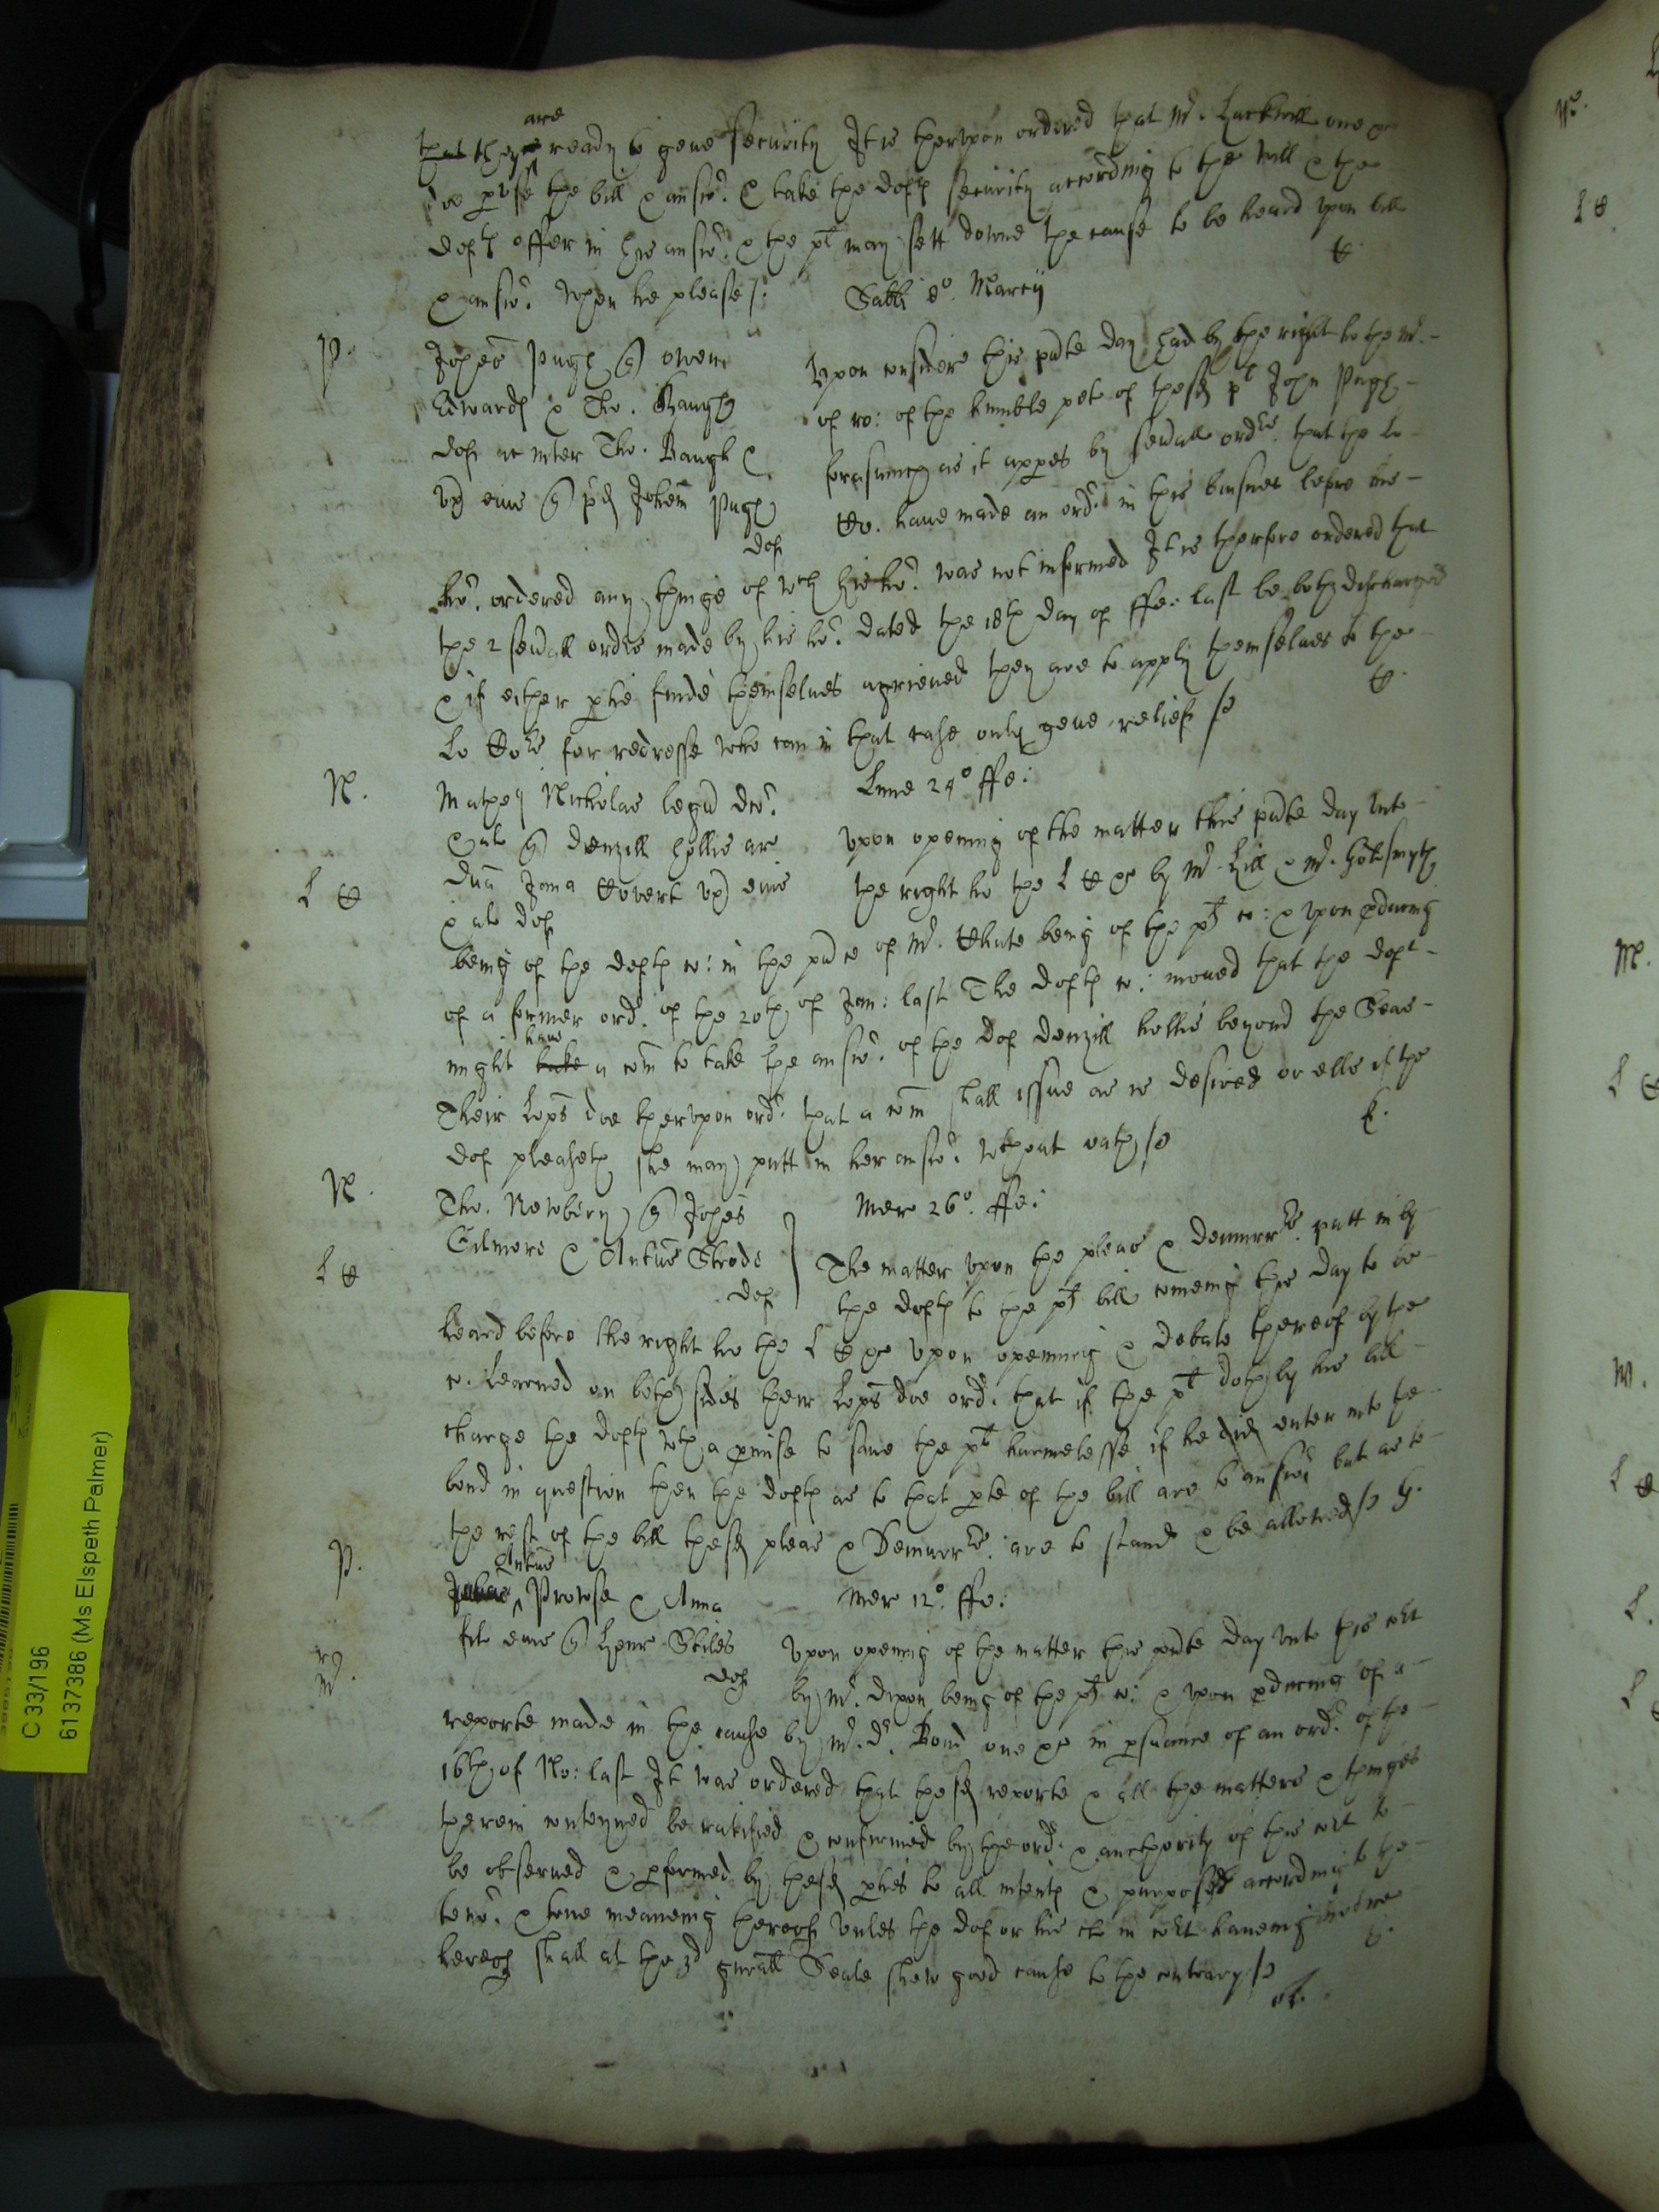 are
that they ready to geue security It is therupon ordered that Mr. Hackwill one &c
doe pvse the bill & answr. & take the deftes security according to the will & the
deftes offer in his answr. & the plt may sett downe the cause to be heard vpon bill
& answr. when he please /. Sabbi 8o. Marcij
P.
Johes Pugh q Owenu
Edwards & Tho. Baugh
def ac inter Tho. Baugh &
vx eius q pd Johem Pugh
def
Vpon consider this pnte day had by the right ho the Mr.
of ro: of the humble pet of the sd plt John Pugh
forasmuch as it appes by seuall ordrs. that the Lo
Ho. haue made an ordr. in this busines before his
hor. ordered any thinge of wch his hor. was not informed It is therfore ordered that
the 2 seuall ordrs made by his hor. dated the 18th day of ffe: last be both discharged
& if either ptie finde themselues agrieued they are to apply themselues to the
Lo Hors for redresse who can in that case only geue relief /
N.
L &
Lune 24o ffe:
Matheus Nicholas legu dcor.
& al q Denzill Hollis ar
Dna Jana Covert vx eius
& al def
vpon opening of the matter this pnte day vnto
the right ho the L & &c by Mr. Hill & Mr. Goldsmyth
being of the deftes co: in the pnce of Mr. White being of the pltes co: & vpon pducing
of a former ordr. of the 20th of Jan: last The deftes co: moued that the deft
haue
might take a com to take the answr. of the def Denzill Hollis beyond the Seas
Their Lopps doe therupon ordr. that a com shall issue as is desired or ells if the
def pleaseth she may putt in her answr. wthout oath /
N.
L &
Tho. Newbery q Johes
Gilmore & Antius Strode
def
Mer 26o. ffe:
The matter vpon the pleas & demurrrs. putt in by
the deftes to the pltes bill comeing this day to be
heard before the right ho the L & &c vpon opening & debate thereof by the
co. learned on both sides their Lopps doe ordr. that if the plt doth by his bill
charge the deftes wth a pmise to saue the plt harmelesse if he did enter into the
bond in question then the deftes as to that pte of the bill are to answr but as to
the rest of the bill the sd pleas & Demurrrs. are to stand & be allowed /
P.
Antius
Prowse & Anna
fil eius q Henr Stiles
def
Mer 12o. ffe:
vpon opening of the matter this pnte day vnto this cort
by Mr. Dixon being of the pltes co: & vpon pducing of a
reporte made in the cause by Mr. Dr. Bond one &c in psuance of an ordr. of the
16th of No: last It was ordered that the sd reporte & all the matters & thinges
therein conteyned be ratified & confirmed by the ordr. & aucthority of this cort to
be obserued & pformed by the sd pties to all intentes & purposes according to the
tenor. & true meaneing thereof vnles the def or his cl in cort haueing notice
hereof shall at the 3d genall Seale shew good cause to the contrary /
C 33/196
6137386 (Ms Elspeth Palmer)